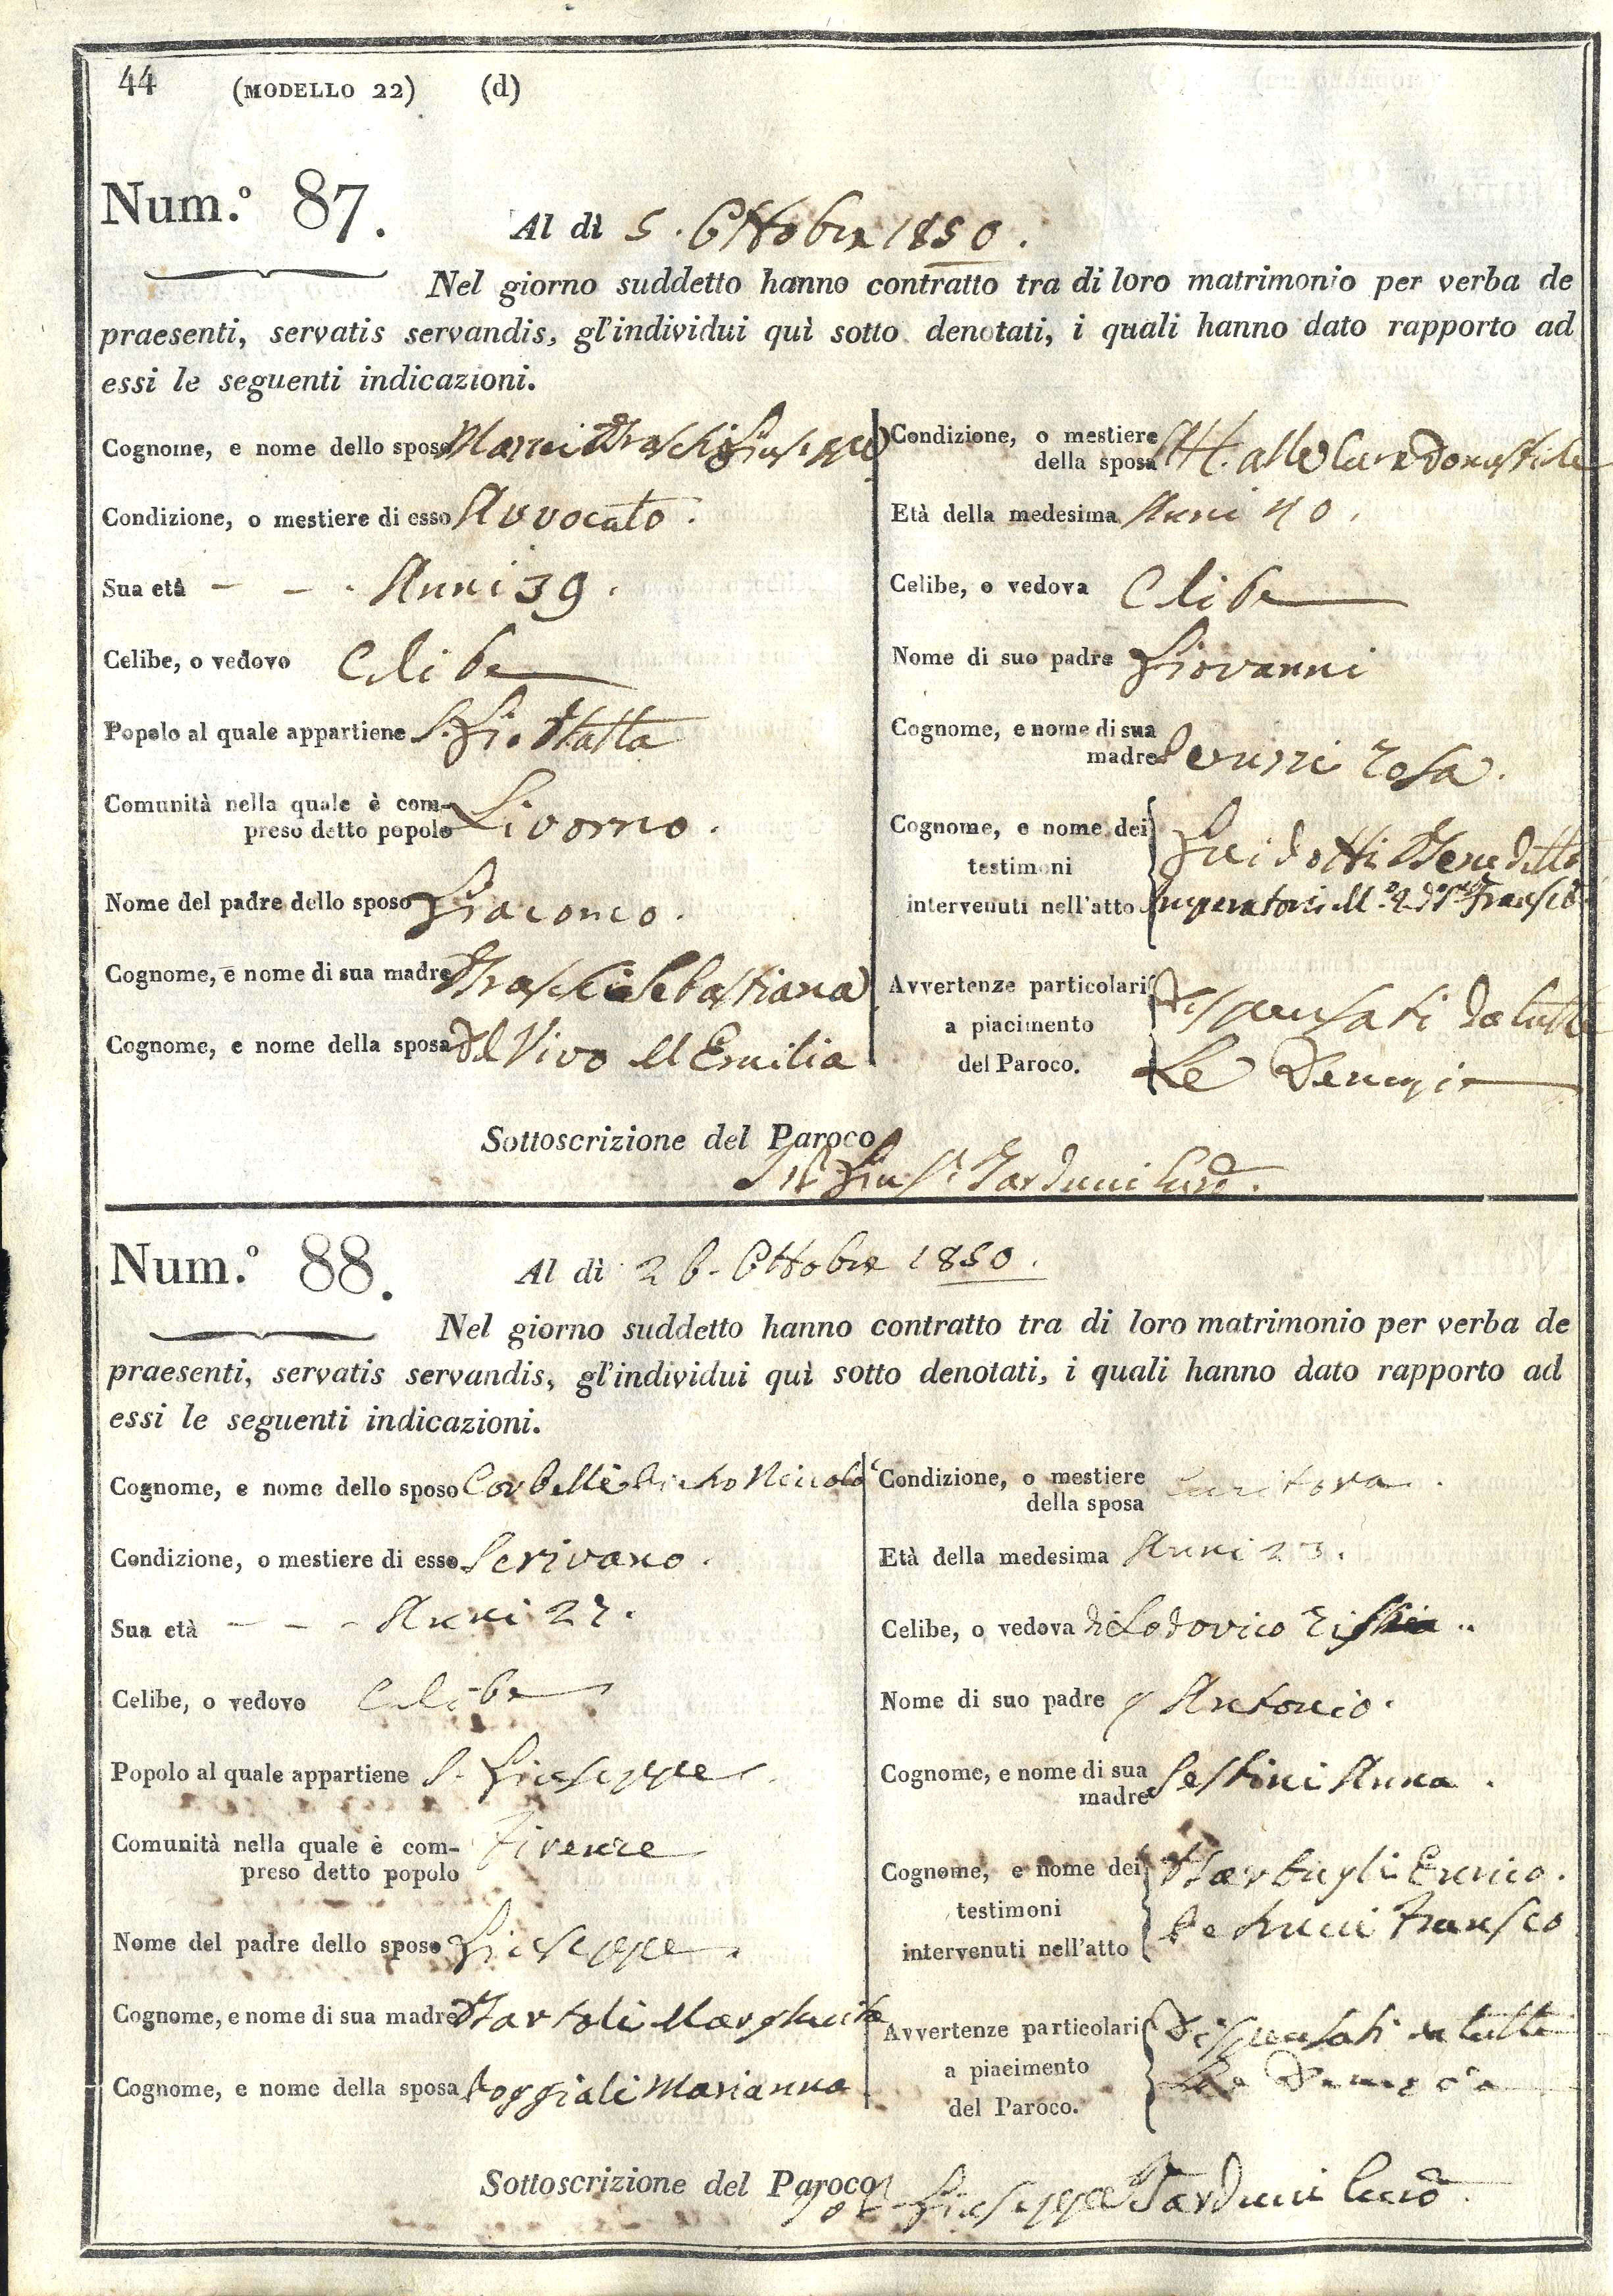 44 (MODELLO 22) (d)
Num.º 87. Al dì 5. Ottobre 1850.
Nel giorno suddetto hanno contratto tra di loro matrimonio per verba de
praesenti, servatis servandis, gl'individui quì sotto denotati, i quali hanno dato rapporto ad
essi le seguenti indicazioni.
Cognome, e nome dello sposo
Condizione, o mestiere di esso Avvocato.
Sua età - - - Anni 39.
Celibe, o vedovo Celibe
Popolo al quale appartiene S. Gio. Batta
Comunità nella quale è com-
preso detto popolo Livorno.
Nome del padre dello sposo Giacomo.
Cognome, e nome di sua madre Sebastiana
Cognome, e nome della sposa Del Vivo M Emilia
Condizione, o mestiere
della sposa Att. alle Cure Domestiche
Età della medesima Anni 40.
Celibe, o vedova Celibe
Nome di suo padre Giovanni
Cognome, e nome di sua
madre Rosa.
Cognome, e nome dei Guidotti Benedetto
testimoni
intervenuti nell'atto Imperatori
Avvertenze particolari Dispensati da tutte
a piacimento
del Paroco. Le Denunzie
Sottoscrizione del Paroco
Tarduci Curo.
Num.º 88. Al dì 26. Ottobre 1850.
Nel giorno suddetto hanno contratto tra di loro matrimonio per verba de
praesenti, servatis servandis, gl'individui quì sotto denotati, i quali hanno dato rapporto ad
essi le seguenti indicazioni.
Cognome, e nome dello sposo Niccolò
Condizione, o mestiere di esso Scrivano.
Sua età - - - Anni 27.
Celibe, o vedovo Celibe
Popolo al quale appartiene S. Giuseppe
Comunità nella quale è com-
preso detto popolo Firenze
Nome del padre dello sposo Giuseppe.
Cognome, e nome di sua madre Bartoli Margherita
Cognome, e nome della sposa Poggiali Marianna
Condizione, o mestiere
della sposa Cucitora.
Età della medesima Anni 23.
Celibe, o vedova di Lodovico
Nome di suo padre Antonio.
Cognome, e nome di sua
madre Sestini Anna.
Cognome, e nome dei Enrico.
testimoni
intervenuti nell'atto
Avvertenze particolari Dispensati da tutte
a piacimento Le Denunzie
del Paroco.
Sottoscrizione del Paroco Giuseppe Tarduci Curo.